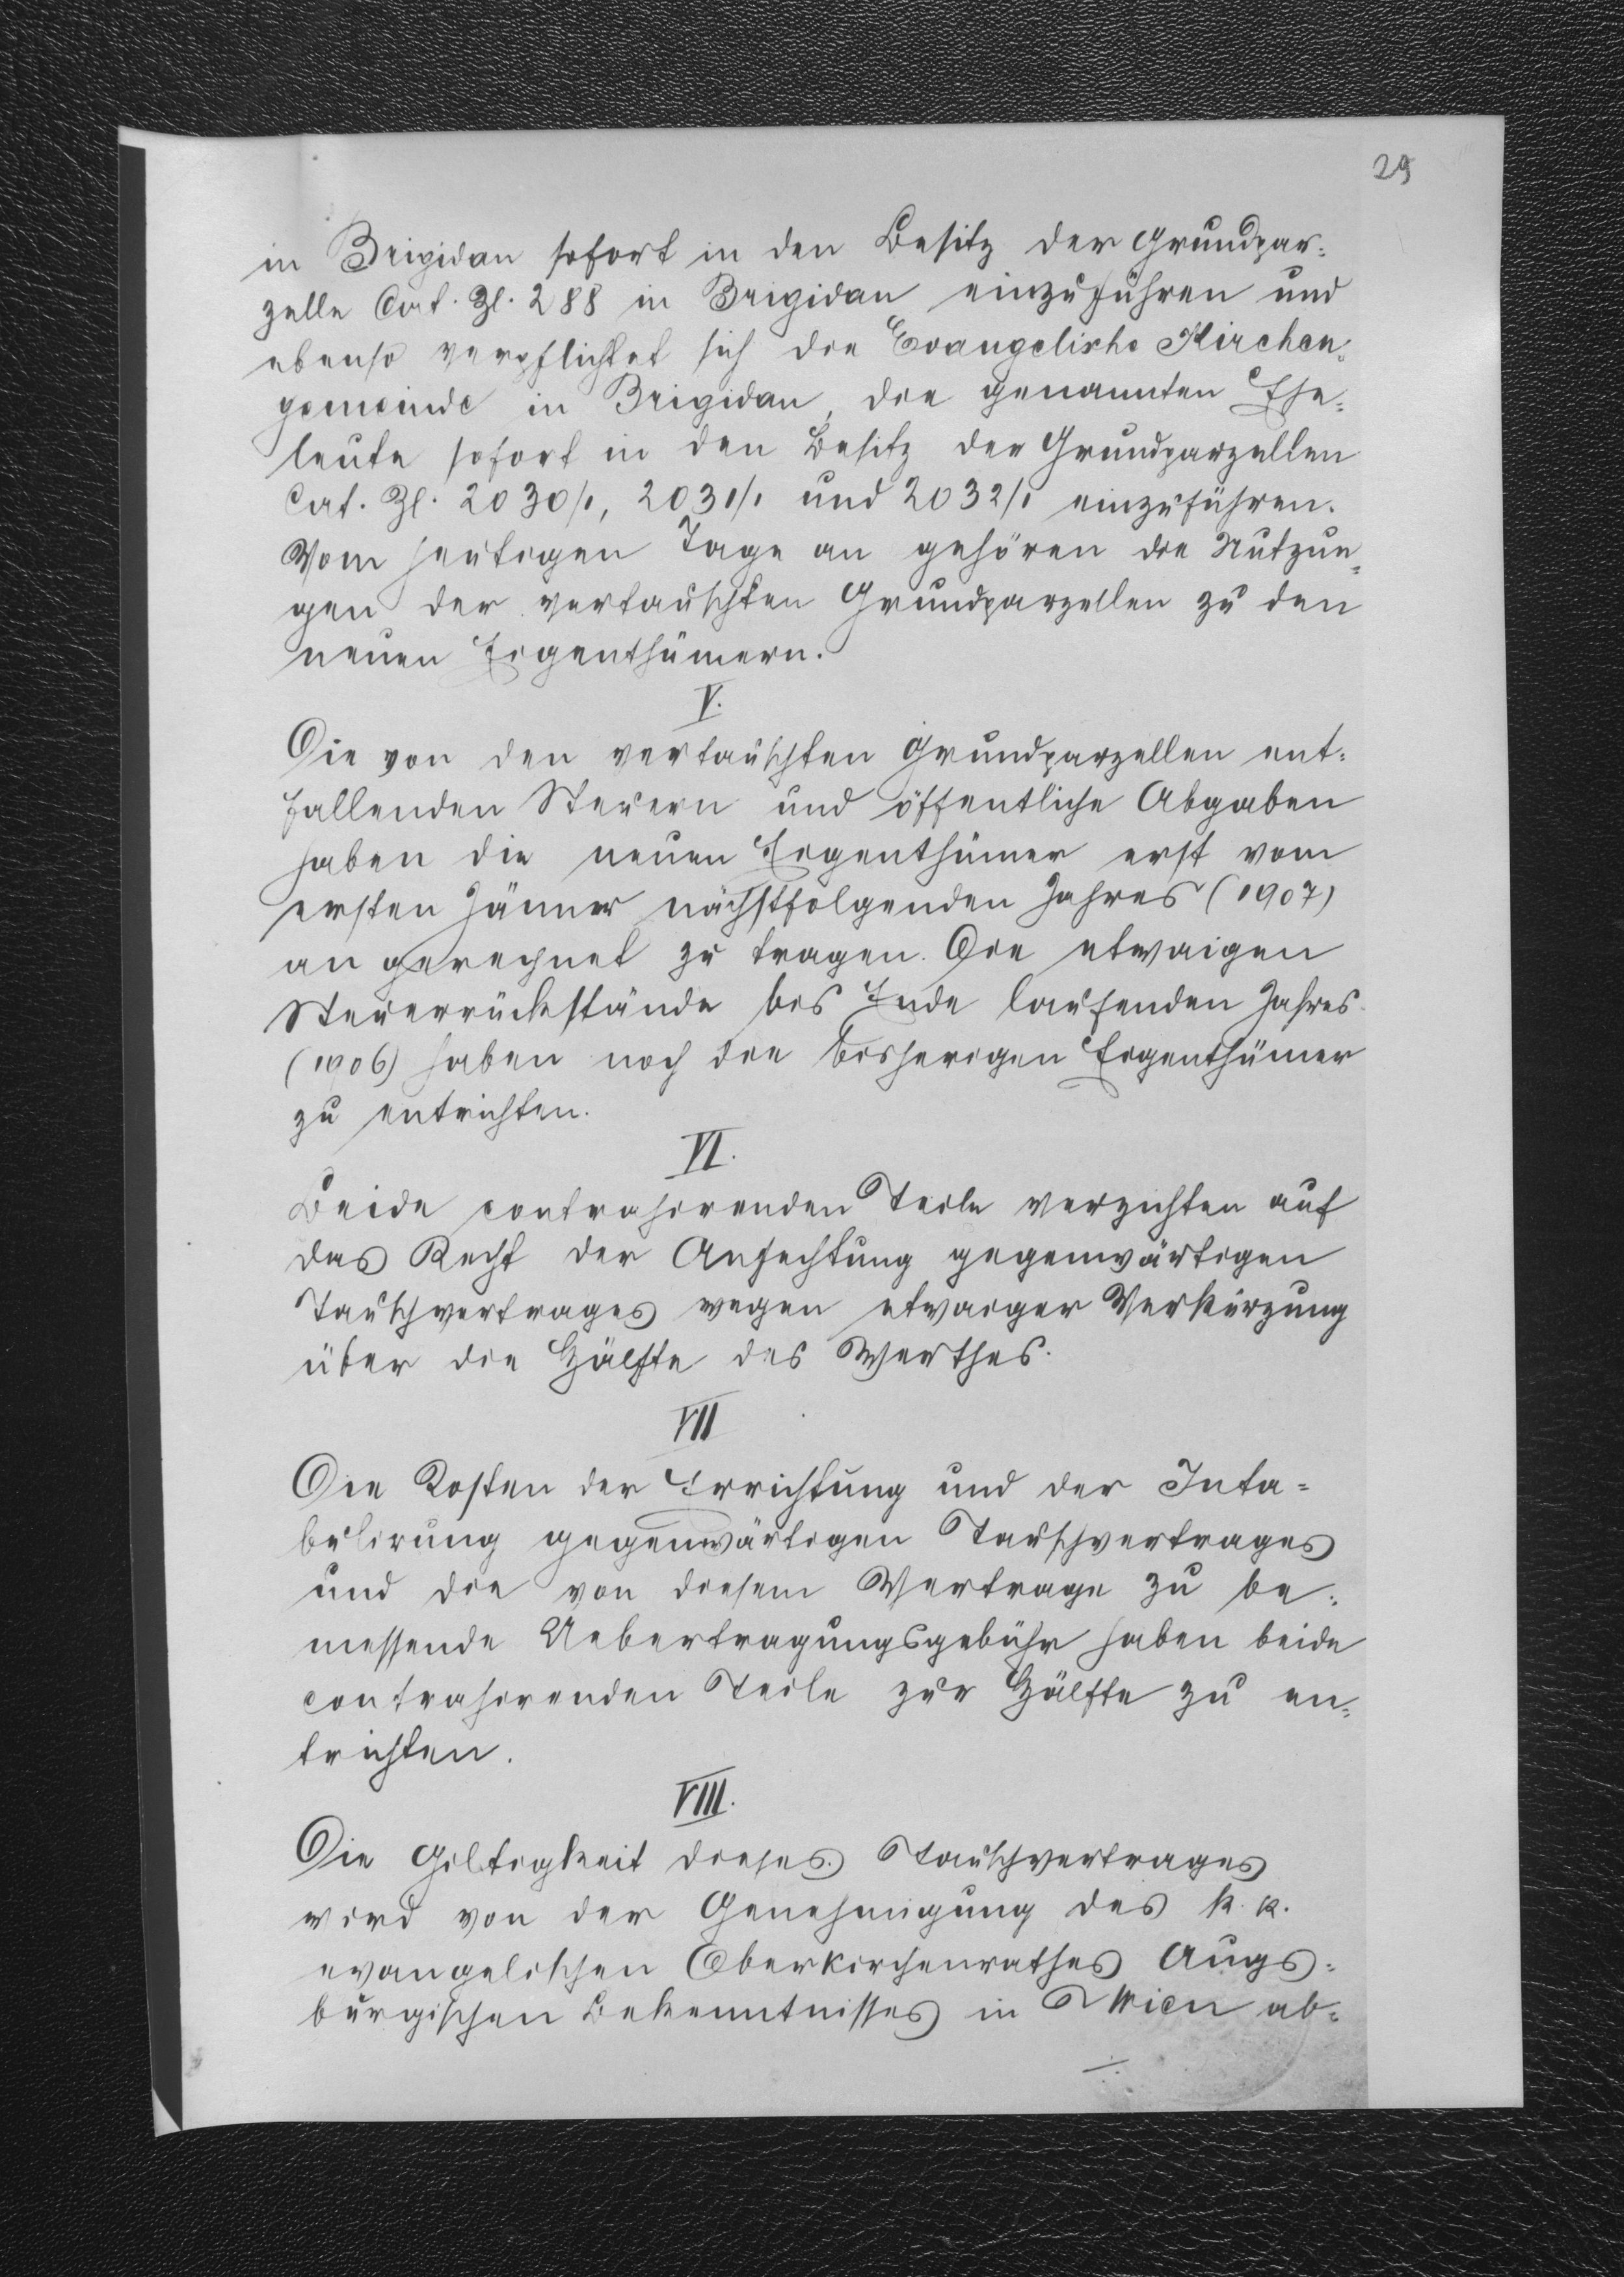 29
in Brigidau sofort in den Besitz der Grundpar=
zelle Cat. Zl. 288 in Brigidau einzuführen und
ebenso verpflichtet sich die Evangelische Kirchen=
gemeinde in Brigidau, die genannten Ehe=
leute sofort in den Besitz der Grundparzellen
Cat. Zl. 2030/1, 2031/1 und 2032/1 einzuführen.
Vom heutigen Tage an gehören die Nutzun=
gen der vertauschten Grundparzellen zu den
neuen Eigenthümern.
V.
Die von den vertauschten Grundparzellen ent=
fallenden Steuern und öffentliche Abgaben
haben die neuen Eigenthümer erst vom
ersten Jänner nächstfolgenden Jahres (1907)
an gerechnet zu tragen. Die etwaigen
Steuerrückstände bis Ende laufenden Jahres
(1906) haben noch die bisherigen Eigenthümer
zu entrichten.
VI.
Beide contrahirenden Teile verzichten auf
das Recht der Anfechtung gegenwärtigen
Tauschvertrages wegen etwaiger Verkürzung
über die Hälfte des Werthes.
VII
Die Kosten der Errichtung und der Inta=
bulirung gegenwärtigen Tauschvertrages
und die von diesem Vertrage zu be=
messende Uebertragungsgebühr haben beide
contrahirenden Teile zur Hälfte zu en=
trichten.
VIII.
Die Giltigkeit dieses Tauschvertrages
wird von der Genehmigung des k. k.
evangelischen Oberkirchenrathes Augs=
burgischen Bekenntnisses in Wien ab=